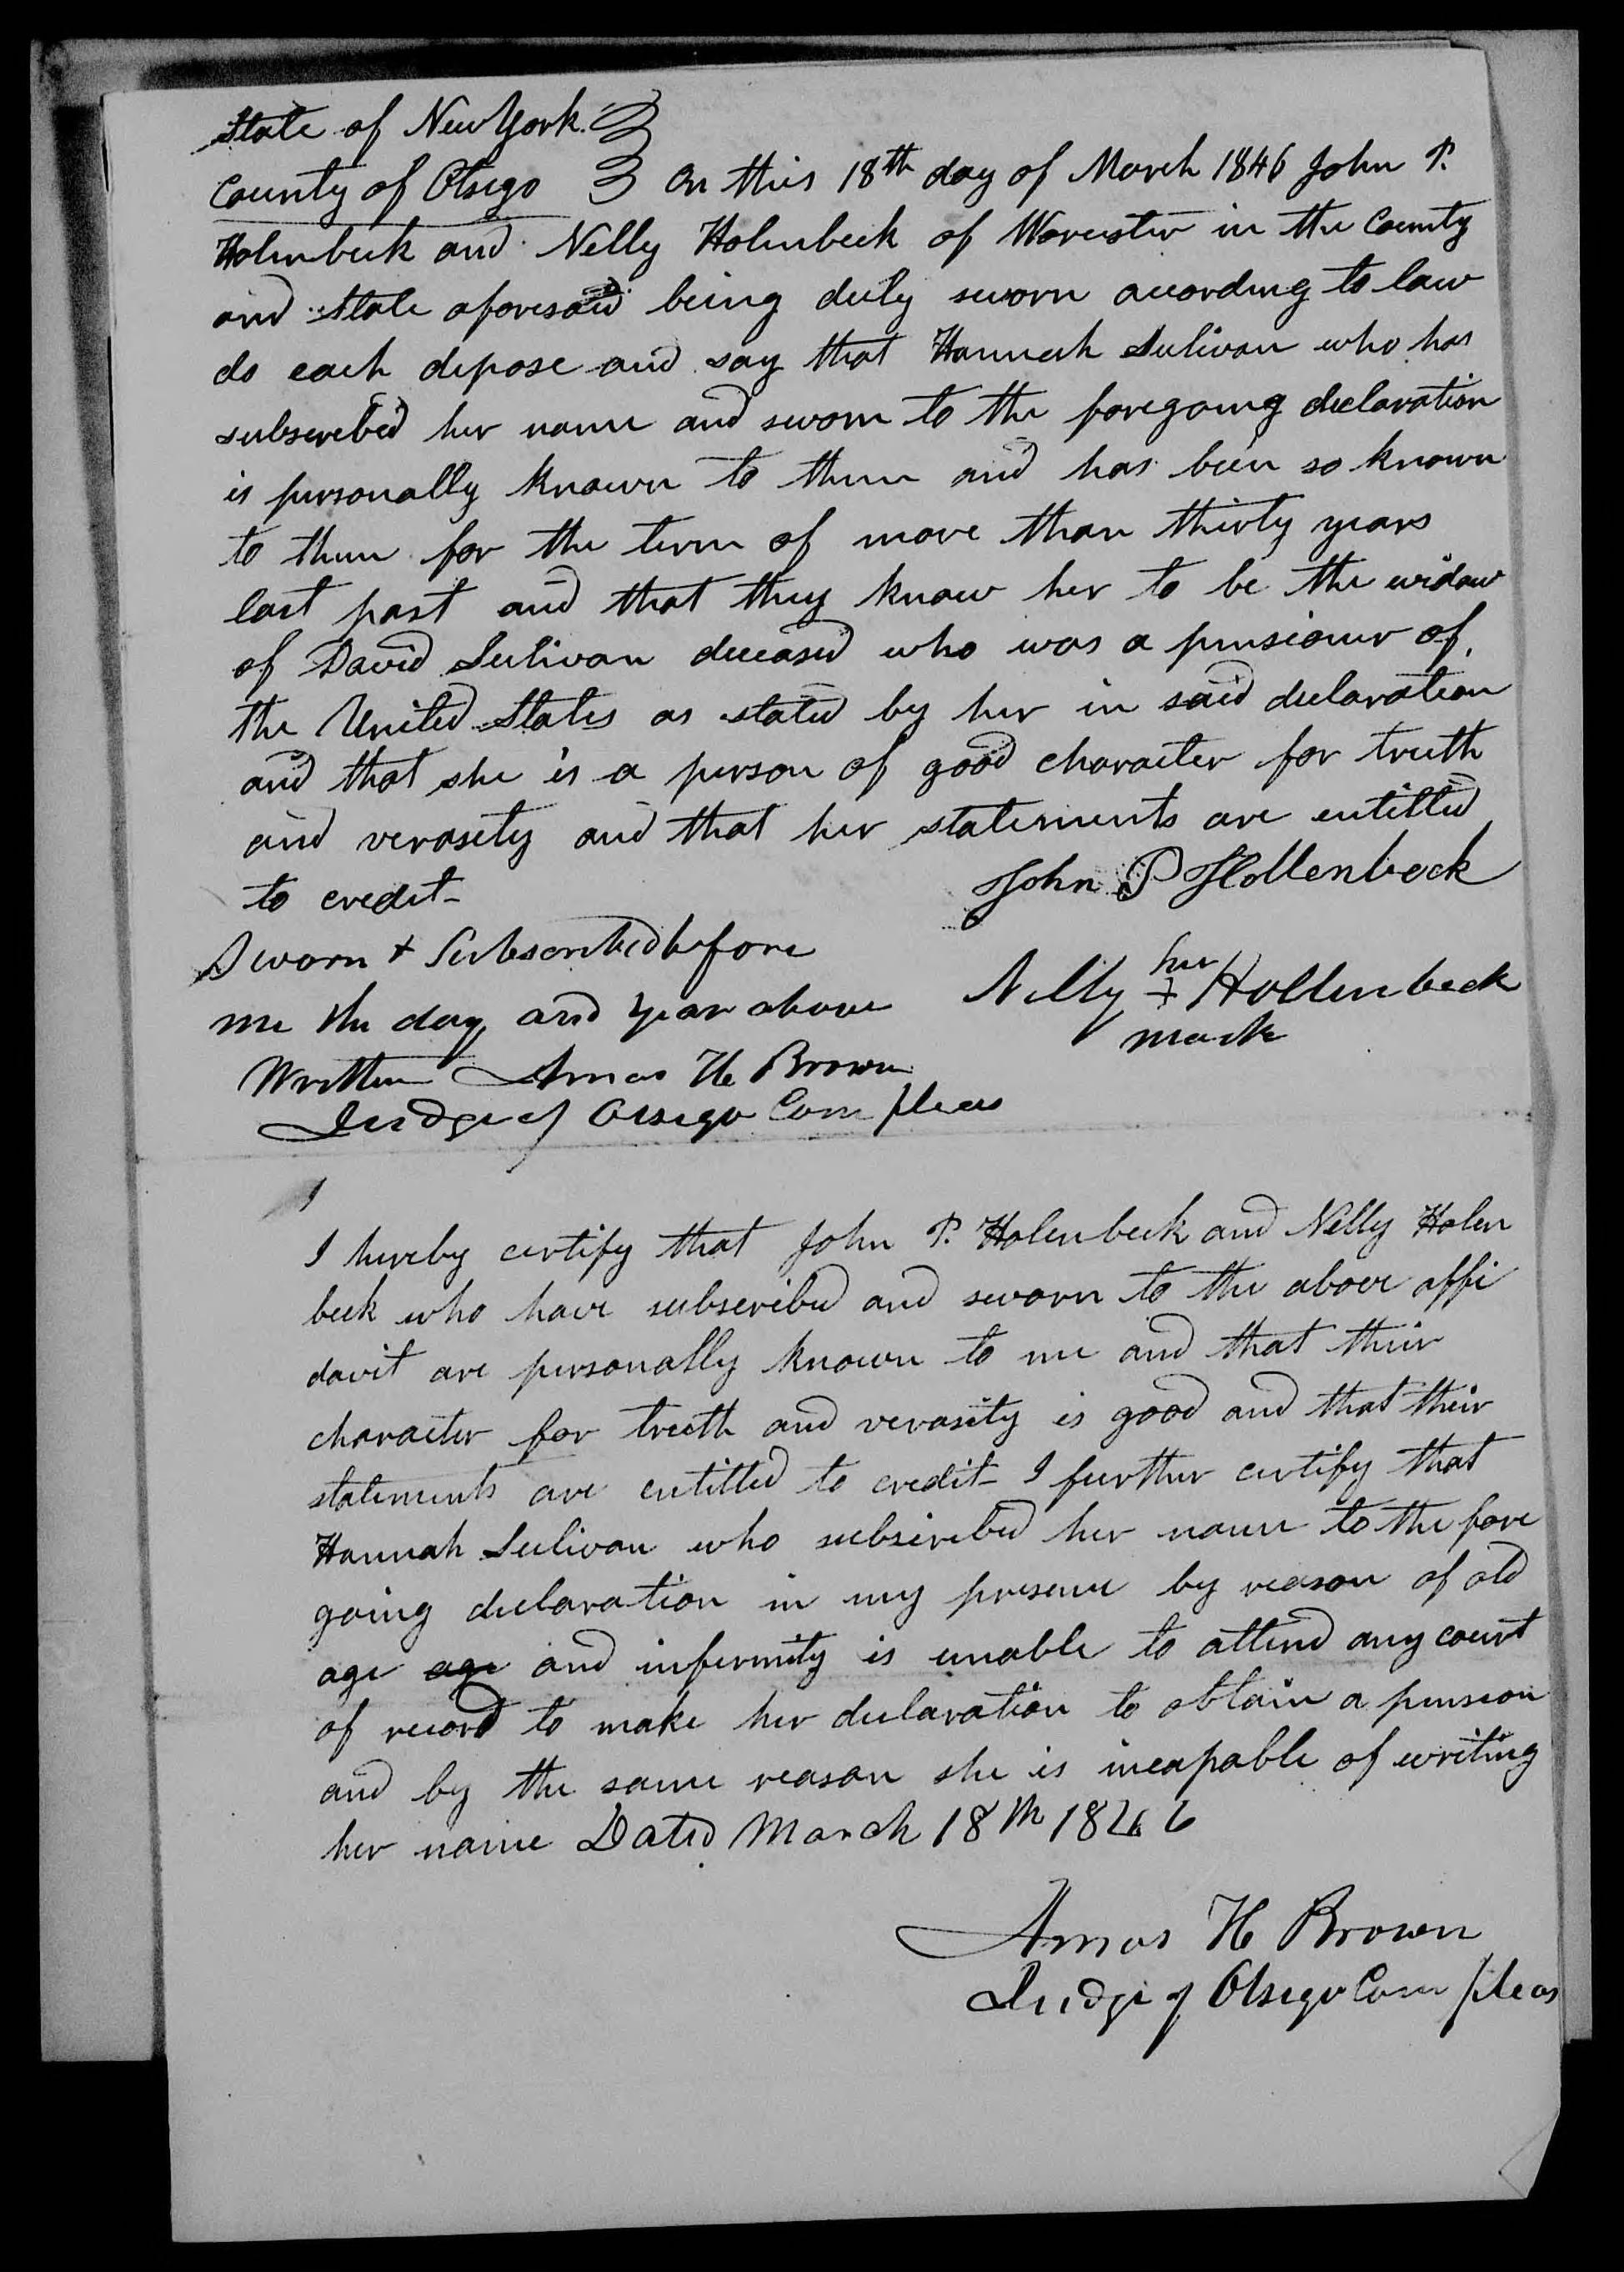 State of New York.
County of Otsego On this 18th day of March 1846 John P.
Holenbeck and Nelly Holenbeck of Worcester in the County
and State aforesaid being duly sworn according to law
do each depose and say that Hannah Sulivan who has
subscribed her name and sworn to the foregoing declaration
is personally known to them and has been so known
to them for the term of more than thirty years
last past and that they know her to be the widow
of David Sulivan deceased who was a pensioner of
the United States as stated by her in said declaration
and that she is a person of good character for truth
and verasity and that her statements are entitled
to credit-
John P Hollenbeck
Sworn + Subscribed before
me the day and year above
Written Amos H Brown
Judge of Otsego Com pleas
Nelly her + Hollenbeck
mark
I hereby certify that John P. Holenbeck and Nelly Holen
beck who have subscribed and sworn to the above affi
davit are personally known to me and that their
character for truth and verasity is good and that their
statements are entitled to credit- I further certify that
Hannah Sulivan who subscribed her name to the fore
going declaration in my presence by reason of old
age age and infirmity is unable to attend any court
of record to make her declaration to obtain a pension
and by the same reason she is incapable of writing
her name Dated March 18th 1846
Amos H Brown
Judge of Otsego Com pleas